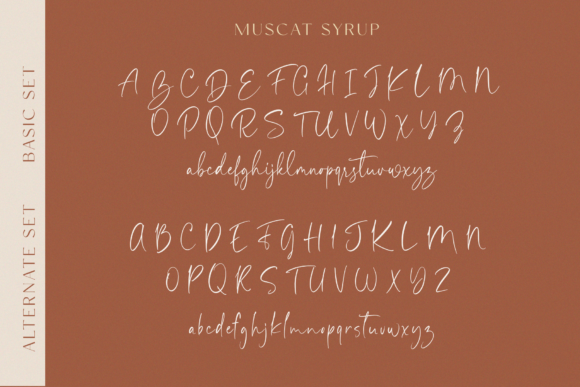 MUSCAT SYRUP
BASIC SET
A B C D E F G H I J K L M N
O P Q R S T U V W X Y Z
abcdefghijklmnopqrstuvwxyz
ALTERNATE SET
A B C D E F G H I J K L M N
O P Q R S T U V W X Y Z
abcdefghijklmnopqrstuvwxyz